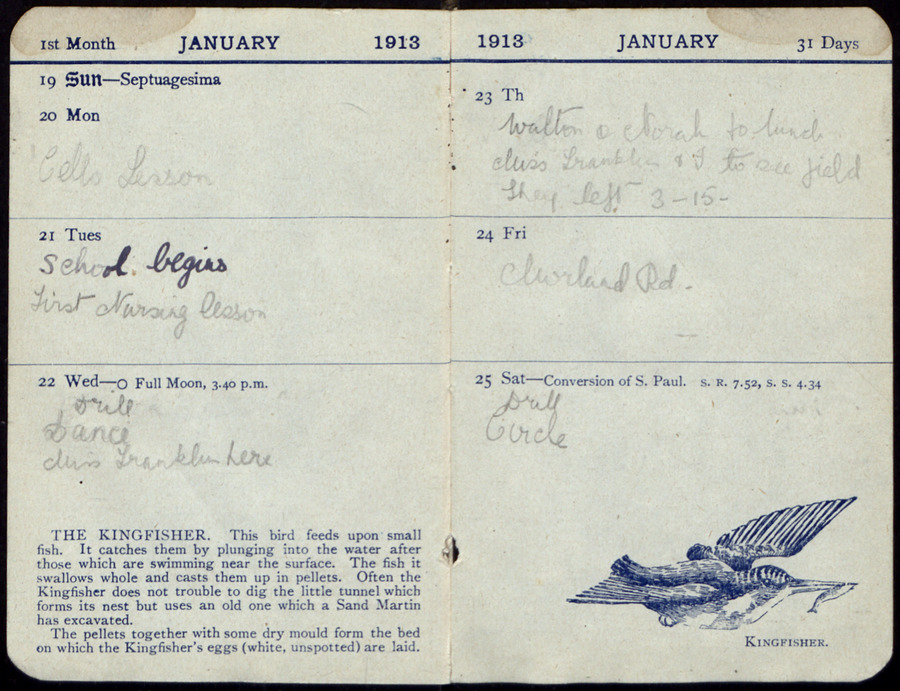 1st Month JANUARY 1913
19 Sun—Septuagesima
20 Mon
Cello Lesson
21 Tues
School begins
First Nursing lesson
22 Wed—O Full Moon, 3.40 p.m.
Drill
Dance
Miss Franklin here
THE KINGFISHER. This bird feeds upon small
fish. It catches them by plunging into the water after
those which are swimming near the surface. The fish it
swallows whole and casts them up in pellets. Often the
Kingfisher does not trouble to dig the little tunnel which
forms its nest but uses an old one which a Sand Martin
has excavated.
The pellets together with some dry mould form the bed
on which the Kingfisher's eggs (white, unspotted) are laid.
1913 JANUARY 31 Days
23 Th
Walton & Norah to lunch
Miss Franklin & I to see field
They left 3-15-
24 Fri
Rd.
25 Sat—Conversion of S. Paul. S. R. 7.52, S. S. 4.34
Drill
Circle
KINGFISHER.